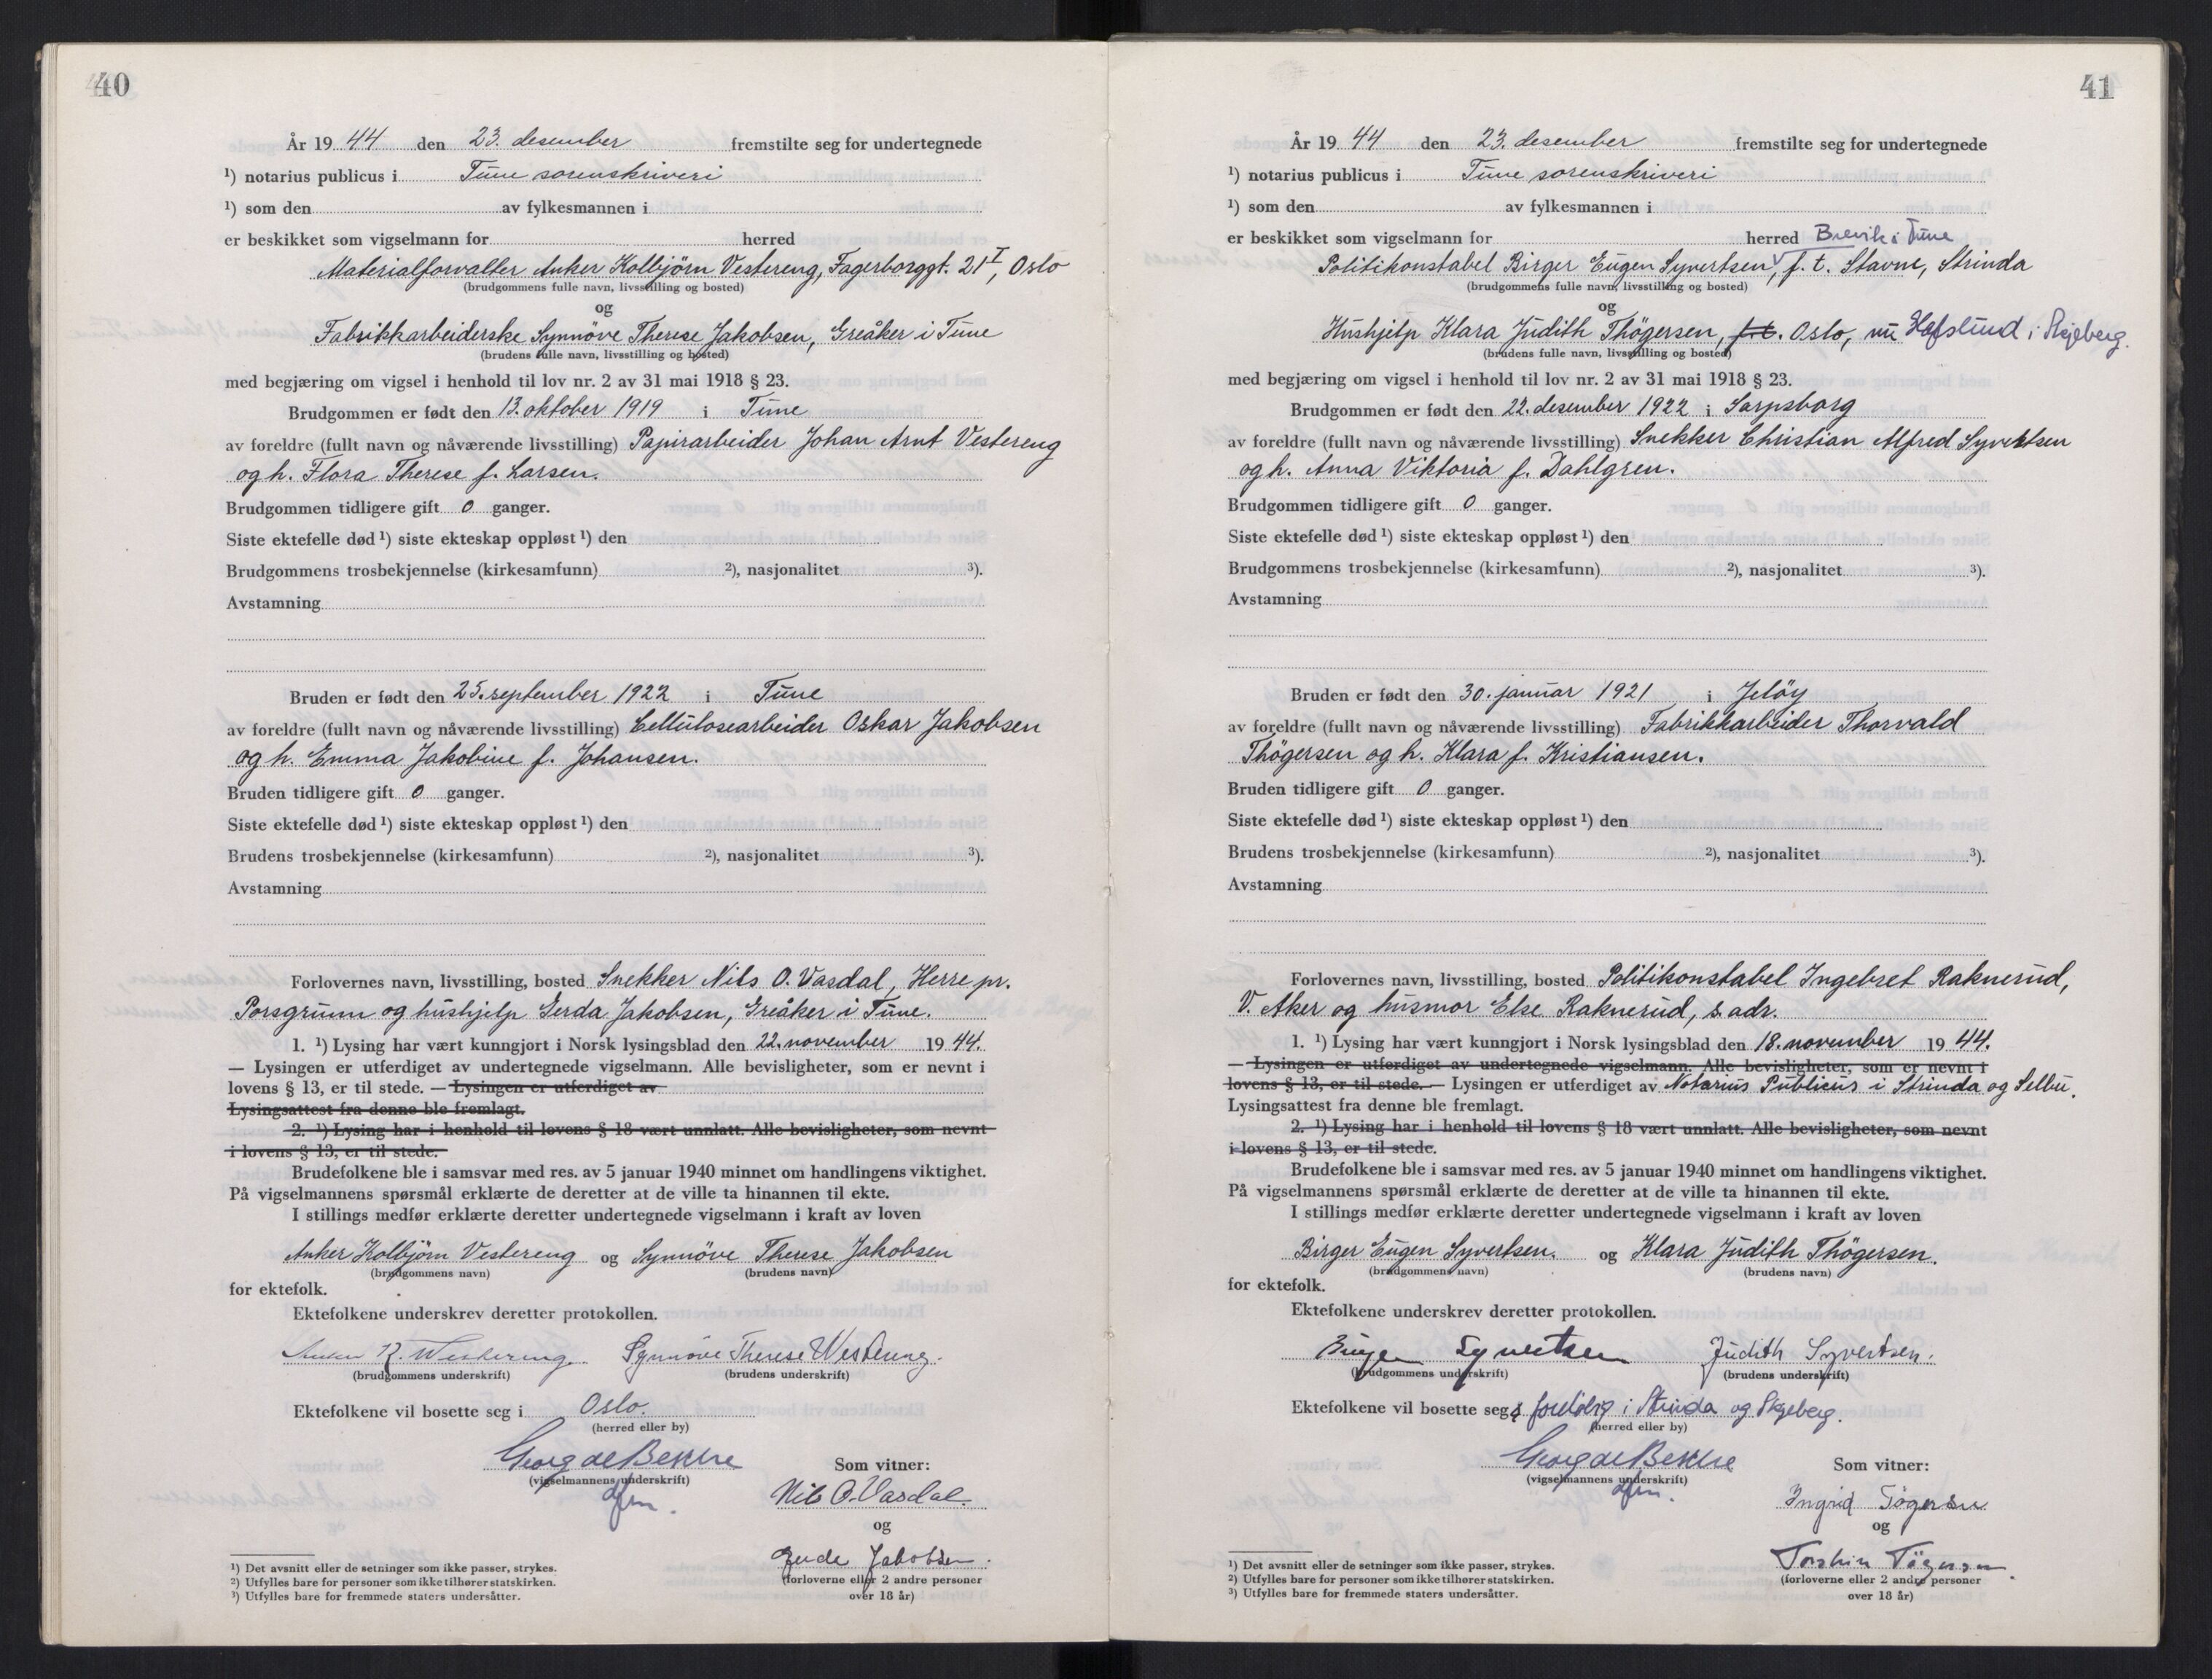 40
År 19 44 den 23. desember fremstilte seg for undertegnede
¹) notarius publicus i Tune sorenskriveri
¹) som den av fylkesmannen i
er beskikket som vigselmann for herred
Materialforvalter Anker Kolbjörn Vestereng, Fagerborggt. 21 I, Oslo
(brudgommens fulle navn, livsstilling og bosted)
og
Fabrikkarbeiderske Synnöve Therese Jakobsen, Greåker i Tune
(brudens fulle navn, livsstilling og bosted)
med begjæring om vigsel i henhold til lov nr. 2 av 31 mai 1918 § 23.
Brudgommen er født den 13. oktober 1919 i Tune
av foreldre (fullt navn og nåværende livsstilling) Papirarbeider Johan Arnt Vestereng
og h. Flora Therese f. Larsen.
Brudgommen tidligere gift 0 ganger.
Siste ektefelle død ¹) siste ekteskap oppløst ¹) den
Brudgommens trosbekjennelse (kirkesamfunn) ²), nasjonalitet ³).
Avstamning
Bruden er født den 25. september 1922 i Tune
av foreldre (fullt navn og nåværende livsstilling) Cellulosearbeider Oskar Jakobsen
og h. Emma Jakobine f. Johansen.
Bruden tidligere gift 0 ganger.
Siste ektefelle død ¹) siste ekteskap oppløst ¹) den
Brudens trosbekjennelse (kirkesamfunn) ²), nasjonalitet ³).
Avstamning
Forlovernes navn, livsstilling, bosted Snekker Nils O. Vasdal, Herre pr.
Porsgrunn og hushjelp Gerda Jakobsen, Greåker i Tune.
1. ¹) Lysing har vært kunngjort i Norsk lysingsblad den 22. november 19 44.
— Lysingen er utferdiget av undertegnede vigselmann. Alle bevisligheter, som er nevnt i
lovens § 13, er til stede. — Lysingen er utferdiget av
Lysingsattest fra denne ble fremlagt.
2. ¹) Lysing har i henhold til lovens § 18 vært unnlatt. Alle bevisligheter, som nevnt
i lovens § 13, er til stede.
Brudefolkene ble i samsvar med res. av 5 januar 1940 minnet om handlingens viktighet.
På vigselmannens spørsmål erklærte de deretter at de ville ta hinannen til ekte.
I stillings medfør erklærte deretter undertegnede vigselmann i kraft av loven
Anker Kolbjörn Vestereng og Synnöve Therese Jakobsen
(brudgommens navn) (brudens navn)
for ektefolk.
Ektefolkene underskrev deretter protokollen.
Anker K. Westereng. Synnöve Therese Westereng.
(brudgommens underskrift) (brudens underskrift)
Ektefolkene vil bosette seg i Oslo.
(herred eller by)
Georg de Besche
(vigselmannens underskrift)
Som vitner:
Nils O. Vasdal.
og
Gerda Jakobsen.
(forloverne eller 2 andre personer
over 18 år)
¹) Det avsnitt eller de setninger som ikke passer, strykes.
²) Utfylles bare for personer som ikke tilhører statskirken.
³) Utfylles bare for fremmede staters undersåtter.
41
År 19 44 den 23. desember fremstilte seg for undertegnede
¹) notarius publicus i Tune sorenskriveri
¹) som den av fylkesmannen i
er beskikket som vigselmann for herred Brevik i Tune
Politikonstabel Birger Eugen Syvertsen, f. t. Stavne, Strinda
(brudgommens fulle navn, livsstilling og bosted)
og
Hushjelp Klara Judith Thögersen, f.t. Oslo, nu Hafslund i Skjeberg.
(brudens fulle navn, livsstilling og bosted)
med begjæring om vigsel i henhold til lov nr. 2 av 31 mai 1918 § 23.
Brudgommen er født den 22. desember 1922 i Sarpsborg
av foreldre (fullt navn og nåværende livsstilling) Snekker Christian Alfred Syvertsen
og h. Anna Viktoria f. Dahlgren.
Brudgommen tidligere gift 0 ganger.
Siste ektefelle død ¹) siste ekteskap oppløst ¹) den
Brudgommens trosbekjennelse (kirkesamfunn) ²), nasjonalitet ³).
Avstamning
Bruden er født den 30. januar 1921 i Jelöy
av foreldre (fullt navn og nåværende livsstilling) Fabrikkarbeider Thorvald
Thögersen og h. Klara f. Kristiansen.
Bruden tidligere gift 0 ganger.
Siste ektefelle død ¹) siste ekteskap oppløst ¹) den
Brudens trosbekjennelse (kirkesamfunn) ²), nasjonalitet ³).
Avstamning
Forlovernes navn, livsstilling, bosted Politikonstabel Ingebret Raknerud,
V. Aker og husmor Else Raknerud, s. adr.
1. ¹) Lysing har vært kunngjort i Norsk lysingsblad den 18. november 19 44.
— Lysingen er utferdiget av undertegnede vigselmann. Alle bevisligheter, som er nevnt i
lovens § 13, er til stede. — Lysingen er utferdiget av Notarius Publicus i Strinda og Selbu.
Lysingsattest fra denne ble fremlagt.
2. ¹) Lysing har i henhold til lovens § 18 vært unnlatt. Alle bevisligheter, som nevnt
i lovens § 13, er til stede.
Brudefolkene ble i samsvar med res. av 5 januar 1940 minnet om handlingens viktighet.
På vigselmannens spørsmål erklærte de deretter at de ville ta hinannen til ekte.
I stillings medfør erklærte deretter undertegnede vigselmann i kraft av loven
Birger Eugen Syvertsen. og Klara Judith Thögersen.
(brudgommens navn) (brudens navn)
for ektefolk.
Ektefolkene underskrev deretter protokollen.
Birger Syvertsen Judith Syvertsen.
(brudgommens underskrift) (brudens underskrift)
Ektefolkene vil bosette seg foreløbig i Strinda og Skjeberg.
(herred eller by)
Georg de Besche
(vigselmannens underskrift)
Som vitner:
Ingrid Tögersen
og
Torstein Tögersen.
(forloverne eller 2 andre personer
over 18 år)
¹) Det avsnitt eller de setninger som ikke passer, strykes.
²) Utfylles bare for personer som ikke tilhører statskirken.
³) Utfylles bare for fremmede staters undersåtter.